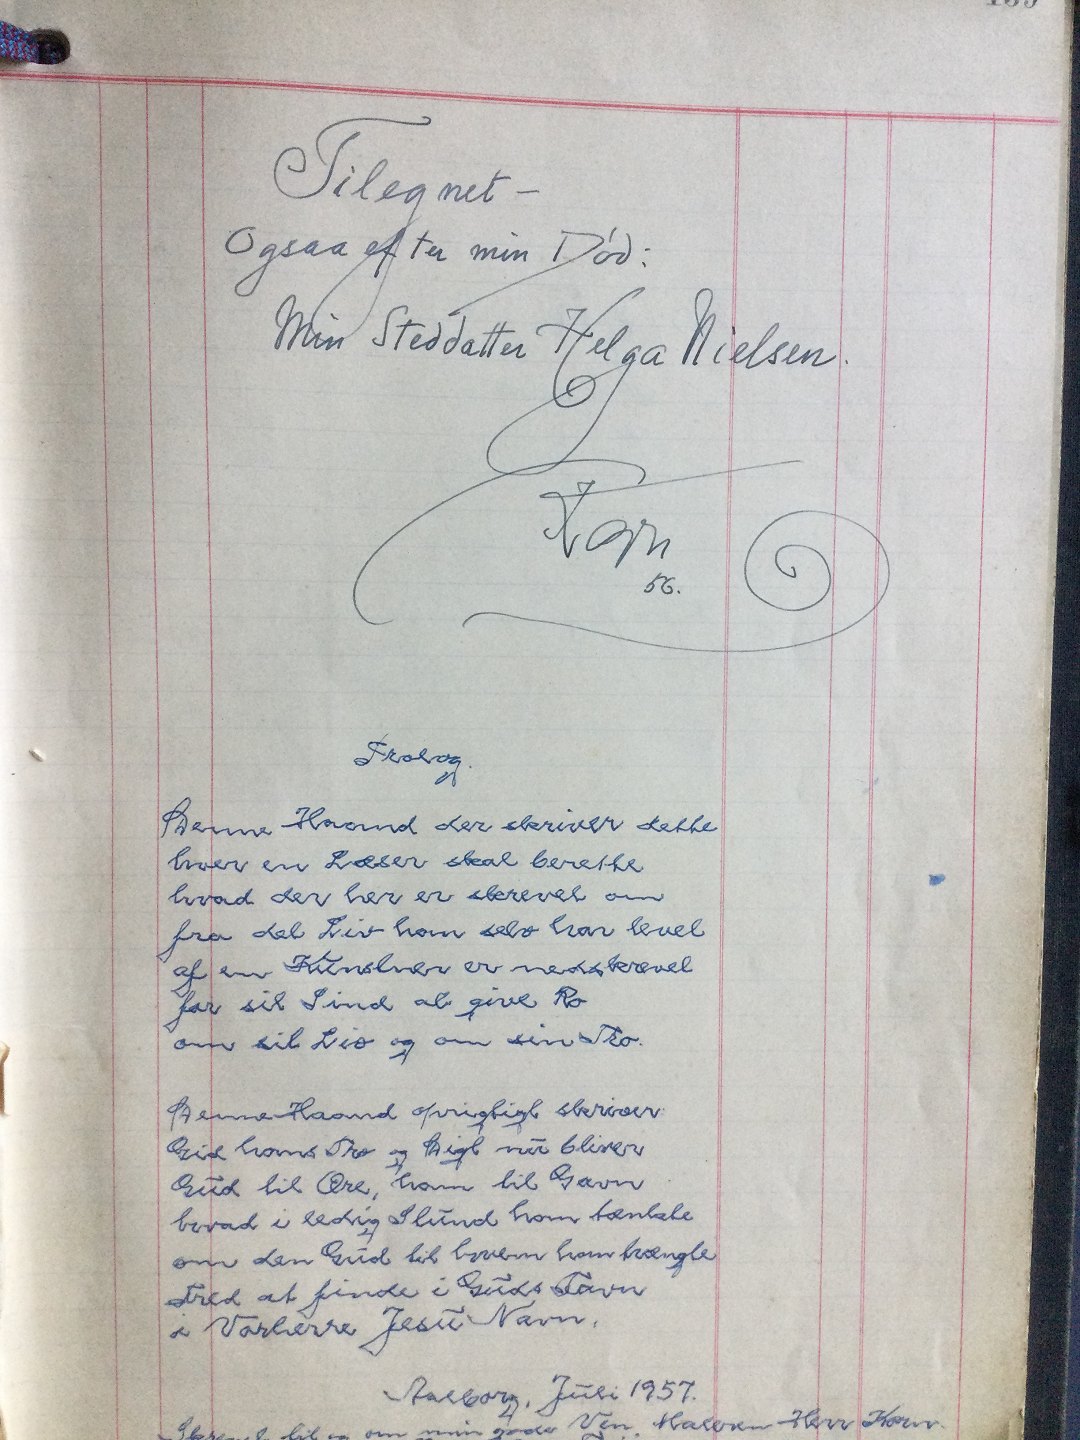 Tilegnet –
Ogsaa efter min Død:
Min Steddatter Helga Nielsen.
Korn
56.
Prolog.
Denne Haand der skriver dette
hver en Læser skal berette
hvad der her er skrevet om
fra det Liv han selv har levet
af en Kunstner er nedskrevet
for sit Sind at give Ro
om sit Liv og om sin Tro.
Denne Haand oprigtigt skriver
Gid hans Tro og Digt nu bliver
Gud til Ære, ham til Gavn
hvad i ledig Stund han tænkte
om den Gud til hvem han trængte
Fred at finde i Guds Favn
i Vorherre Jesu Navn.
Aalborg, Juli 1957.
Skrevet til og om min gode Ven, Maleren Herr Korn.